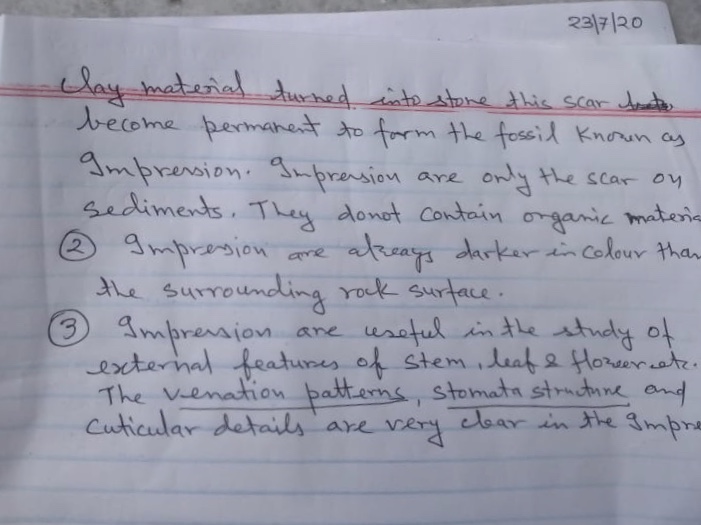 23/7/20
Clay material turned into stone this scar
become permanent to form the fossil Known as
Impression. Impression are only the scar on
sediments. They donot contain organic materia
② Impression are always darker in colour than
the surrounding rock surface.
③ Impression are useful in the study of
external features of stem, leaf & flower etc.
The venation patterns, stomata structure and
cuticular details are very clear in the Impre